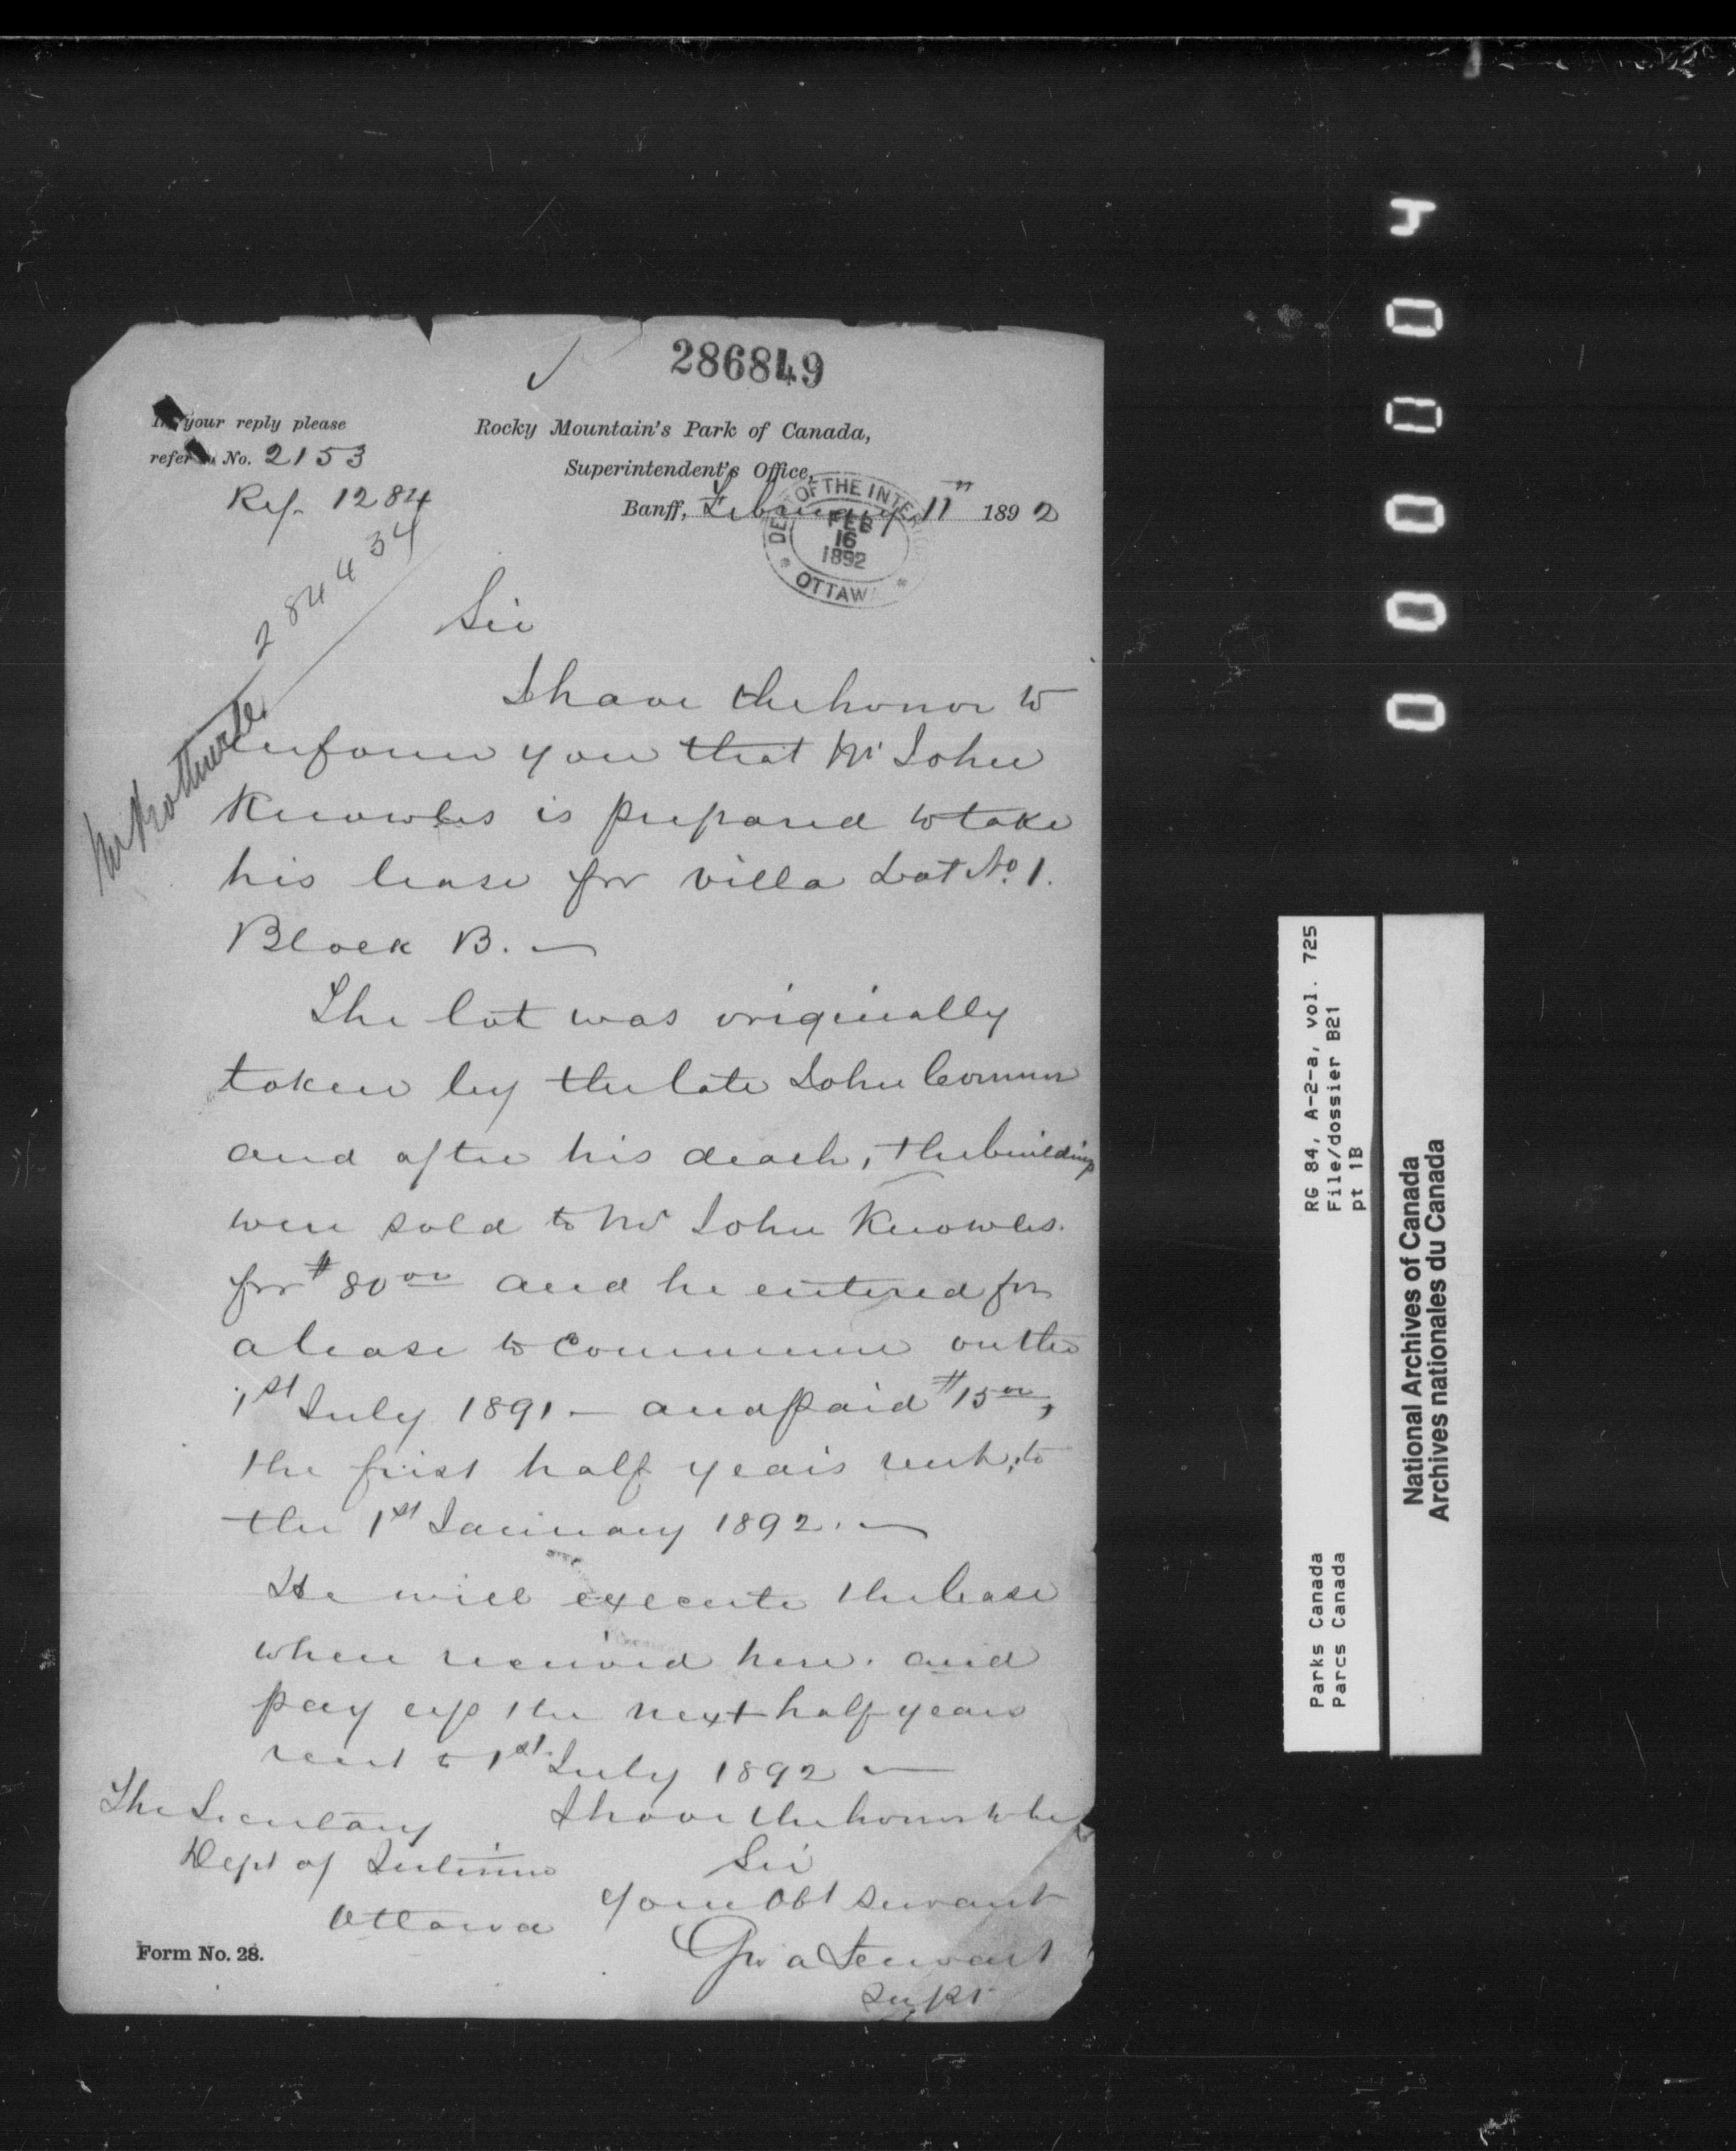 286849
In your reply please
refer to No. 2153
Ref. 1284
284434
Rocky Mountain's Park of Canada,
Superintendent's Office,
Banff, February 11th 1892
DEPT OF THE INTERIOR
FEB
16
1892
OTTAWA
Sir
I have the honor to
inform you that Mr John
Knowles is prepared to take
his lease for Villa Lot No. 1.
Block B. —
The lot was originally
taken by the late John Connor
and after his death, the buildings
were sold to Mr John Knowles.
for $80 00 and he entered for
a lease to commence on the
1st July 1891 — and paid $15 00,
the first half years rent, to
the 1st January 1892. —
He will execute the lease
when received here. and
pay up the next half years
rent to 1st July 1892 —
I have the honor to be
Sir
Your Obt servant
Geo A Stewart
Supt
The Secretary
Dept of Interior
Ottawa
Form No. 28.
0 0 0 0 0 4
RG 84, A-2-a, vol. 725
File/dossier B21
pt 1B
Parks Canada
Parcs Canada
National Archives of Canada
Archives nationales du Canada